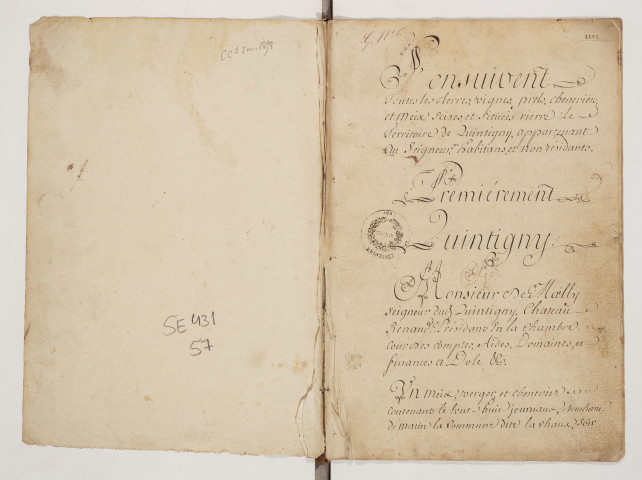 5E 431
57
S'ensuivent
Touttes les terres, vignes, prels, chenevieres
et meix scises et situées rierre le
Territoire de Quintigny, appartenant
Au Seigneur, habitans, et non residants.
Premièrement
Quintigny.
Monsieur De Mailly
seigneur dud. Quintigny, Chateau
Renaud, Président En la chambre
cour des comptes, Aides, Domaines, et
finances a Dole &c.
Un meix, verger, et chenevier
contenants le tout huit journaux, touchant
de matin la Commune dite la chaux, soir